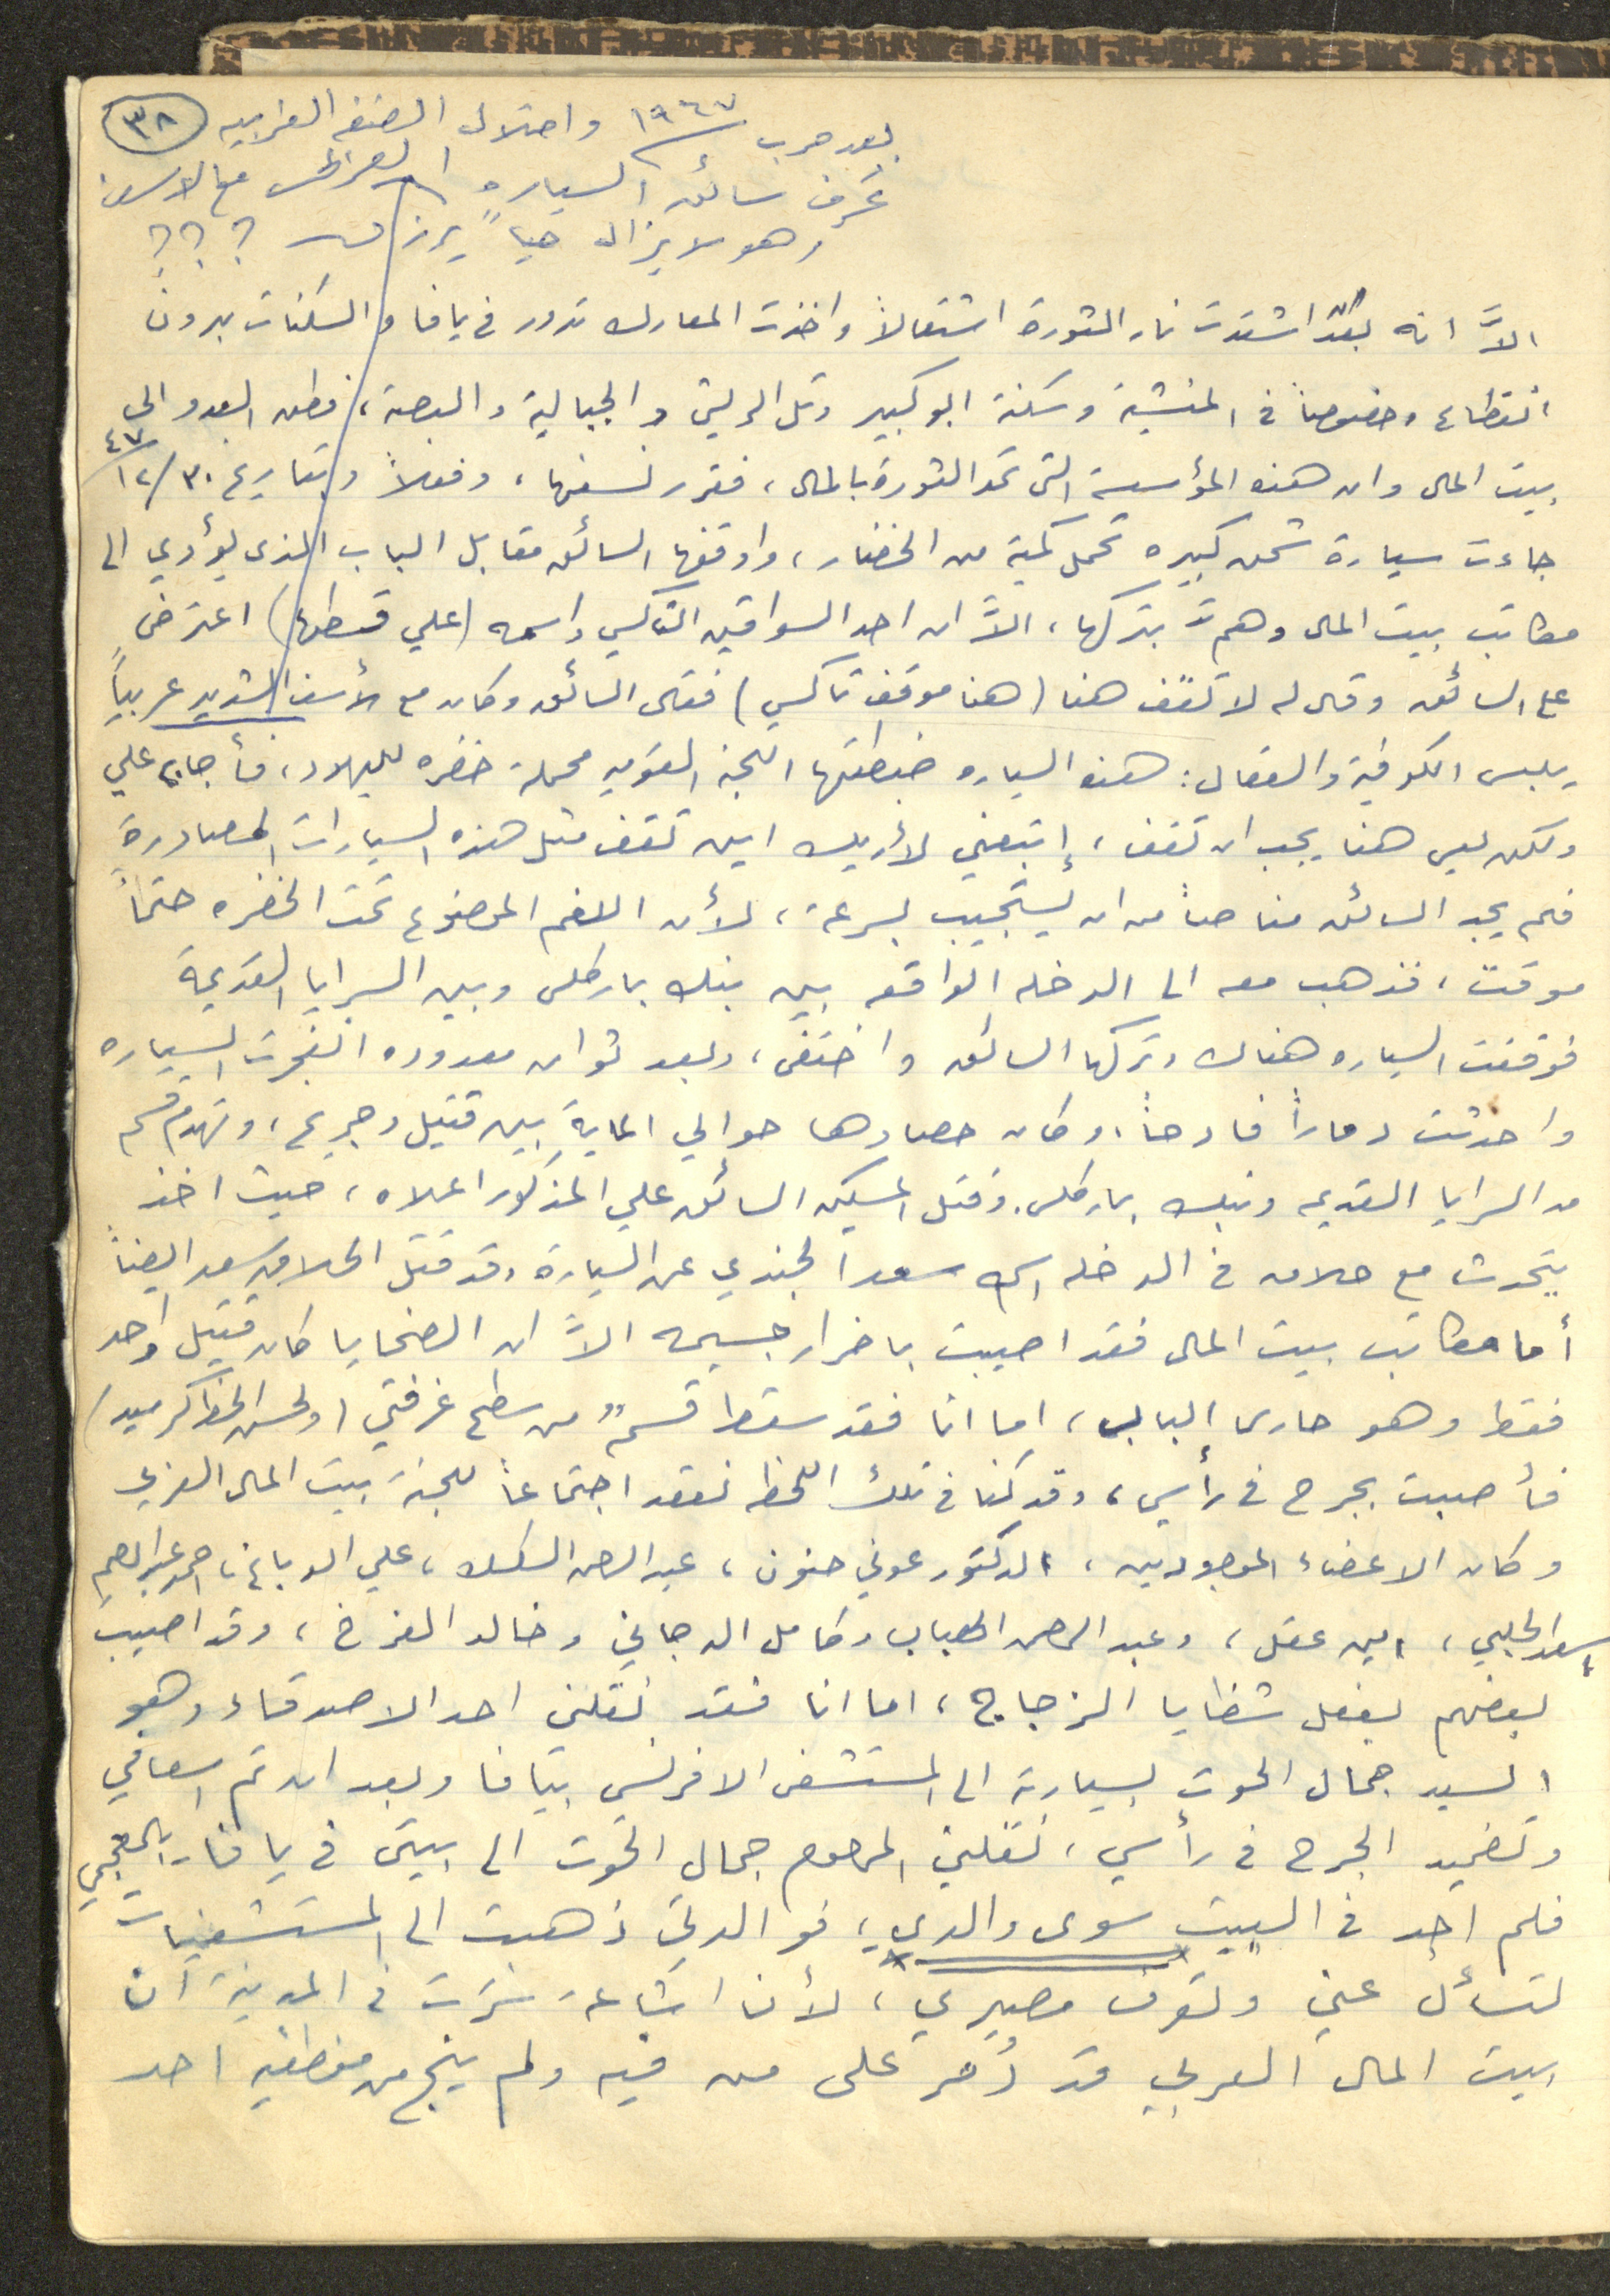 ٣٨
بعد حرب ١٩٦٧ واحتلال الضفه الغربيه
عُرف سائق السياره مع الاسف
وهو لا يزال حياً يرزق ؟؟؟
الاَّ انه بعدُ اشتدت نار الثورة اشتعالاً واخذت المعارك تدور في يافا والسكنات بدون
انقطاع وخصوصاً في المنشية وسكنة ابو كبير وتل الريش والجبالية والبصة، فطن العدو الى
بيت المال وان هذه المؤسسة التي تمد الثورة بالمال، فقرر نسفها، وفعلاً وبتاريخ ٣٠/١٢/٤٧
جاءت سيارة شحن كبيره تحمل كمية من الخضار، واوقفها السائق مقابل الباب الذي يؤدي الى
مكاتب بيت المال وهمَّ بتركها، الاَّ ان احد السواقين التاكسي واسمه (علي قسطها) اعترض
على السائق وقال له لا تقف هنا (هنا موقف تاكسي) فقال السائق وكان مع الأسف الشديد عربياً
يلبس الكوفية والعقال: هذه السياره ضبطتها اللجنه القوميه محملة خضره لليهود، فأجابه علي
ولكن ليس هنا يجب ان تقف، إتبعني لأريك اين تقف مثل هذه السيارات المصادرة
فلم يجد السائق مناصاً من ان يستجيب بسرعة، لأن اللغم الموضوع تحت الخضره حتماً
موقت، فذهب معه الى الدخله الواقعه بين بنك باركلس وبين السرايا القديمة
فوقفت السياره هناك وتركها السائق واختفى، وبعد ثوان معدوده انفجرت السياره
واحدثت دماراً فادحاً. وكان حصادها حوالي الماية بين قتيل وجريح، وتهدم قسم
من السرايا القديمه وبنك باركلس. وقتل المسكين السائق علي المذكور اعلاه، حيث اخذ
يتحدث مع حلاق في الدخله اسمه سعد الجندي عن السيارة وقد قتل الحلاق سعد ايضاً
أما مكاتب بيت المال فقد اصيبت باضرار جسيمه الاَّ ان الضحايا كان قتيل واحد
فقط وهو حارس الباب، اما انا فقد سقط قسمٌ من سطح غرفتي (ولحسن الحظ كرميد)
فأصبت بجرح في رأسي، وقد كنا في تلك اللحظه نعقد اجتماعاً للجنة بيت المال العربي
وكان الاعضاء الموجودين، الدكتور عوني حنون، عبد الرحمن السكسك، علي الدباغ، احمد عبد الرحيم
اسعد الحلبي، امين عقل، وعبد الرحمن الهباب وكامل الدجاني وخالد الفرخ، وقد اصيب
بعضهم بفعل شظايا الزجاج، اما انا فقد نقلني احد الاصدقاء وهو
السيد جمال الحوت بسيارته الى المستشفى الافرنسي بيافا وبعد ان تم اسعافي
وتضميد الجرح في رأسي، نقلني المرحوم جمال الحوت الى بيتي في يافا بالعجمي
فلم اجد في البيت سوى والدي، فوالدتي ذهبت الى المستشفيات
لتسأل عني وتعرف مصيري، لأن اشاعة سَرَت في المدينة ان
بيت المال العربي قد دُمّر على من فيه ولم ينج من موظفيه احد